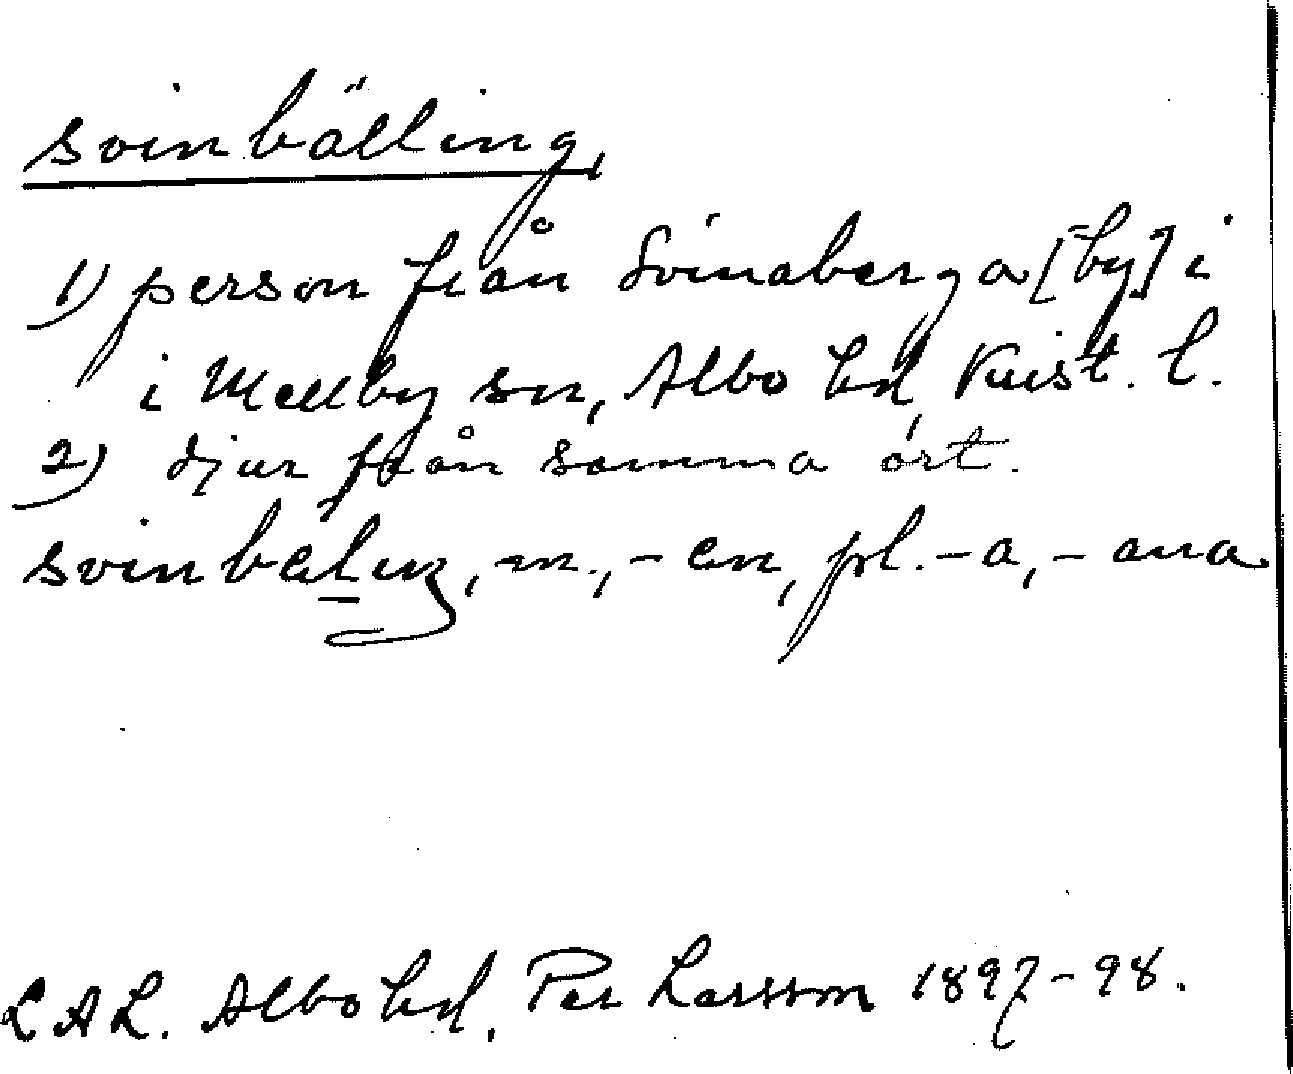 svinbälling,
1) person från Svinaberga [by] i
i Mellby sn, Albo hd, Krist. l.
2) djur från samma ort.
svinbäliŋ, m., -en, pl. -a, -ana
LAL. Albo hd. Per Larsson 1897-98.